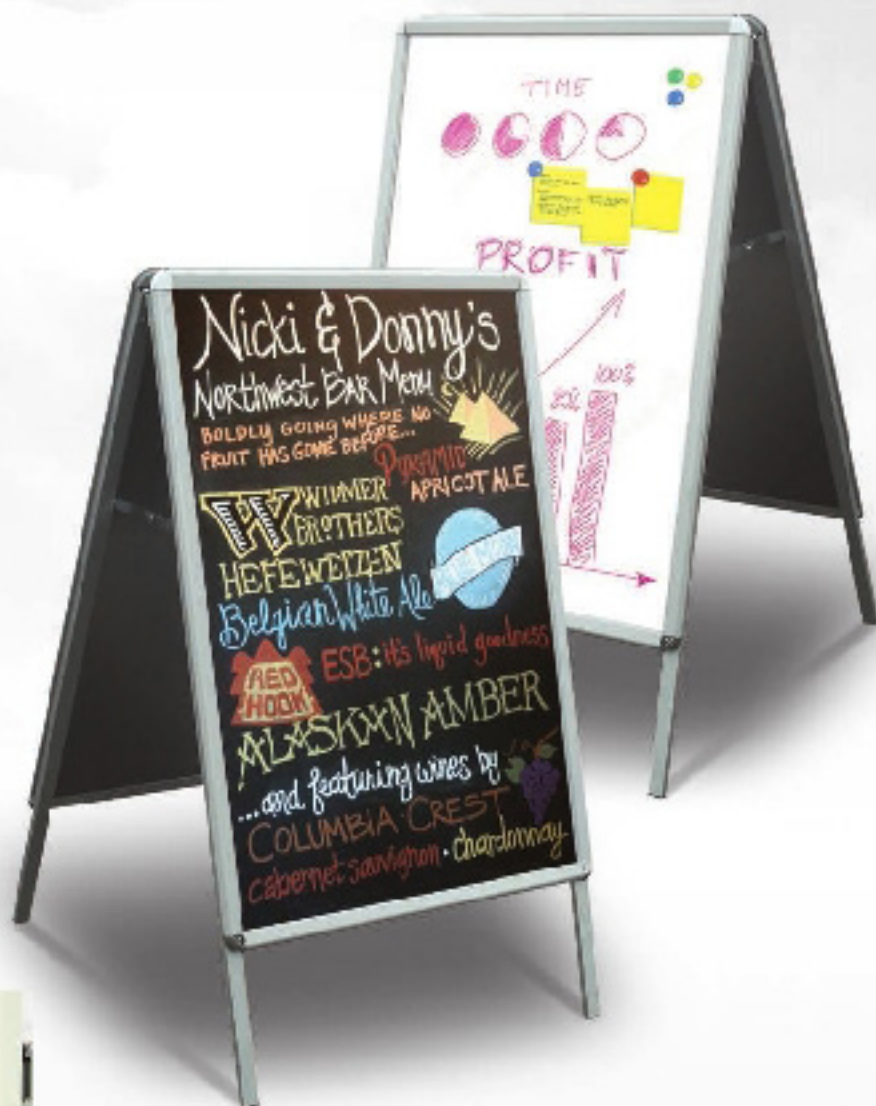 TIME
PROFIT
100%
Nicki & Donny's
Northwest Bar Menu
BOLDLY GOING WHERE NO
FRUIT HAS GONE BEFORE...
PYRAMID
APRICOT ALE
W WIDMER
BROTHERS
HEFEWEIZEN
Belgian White Ale
BLUE MOON
RED
HOOK
ESB: it's liquid goodness
ALASKAN AMBER
...and featuring wines by
COLUMBIA CREST
cabernet sauvignon · chardonnay